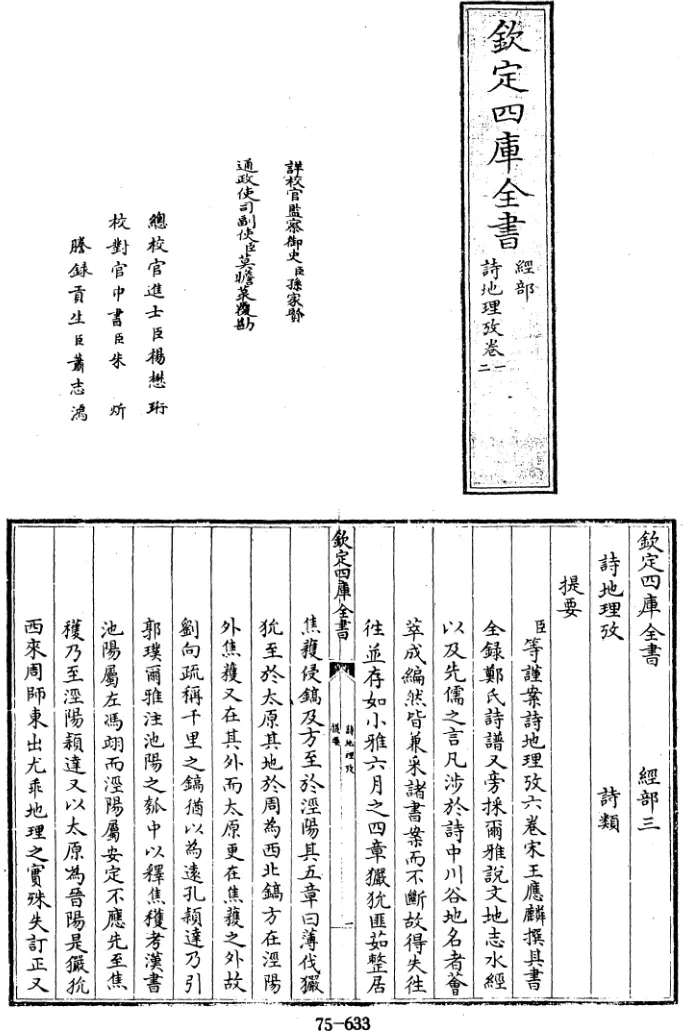 欽定四庫全書
經部
詩地理攷卷一二
詳校官監察御史臣孫家賢
通政使司副使臣莫瞻菉覆勘
總校官進士臣楊懋珩
校對官中書臣朱炘
謄錄貢生臣蕭志鴻
欽定四庫全書 經部三
詩地理攷 詩類
提要
臣等謹案詩地理攷六卷宋王應麟撰其書
全録鄭氏詩譜又旁採爾雅說文地志水經
以及先儒之言凡涉於詩中川谷地名者薈
萃成編然皆兼采諸書案而不斷故得失往
往並存如小雅六月之四章玁狁匪茹整居
欽定四庫全書 詩地理攷 提要 一
焦穫侵鎬及方至於涇陽其五章曰薄伐玁
狁至於太原其地於周為西北鎬方在涇陽
外焦穫又在其外而太原更在焦穫之外故
劉向疏稱千里之鎬猶以為遠孔穎達乃引
郭璞爾雅注池陽之瓠中以釋焦穫考漢書
池陽屬左馮翊而涇陽屬安定不應先至焦
穫乃至涇陽穎達又以太原為晉陽是玁狁
西來周師東出尤乖地理之實殊失訂正又
75-633